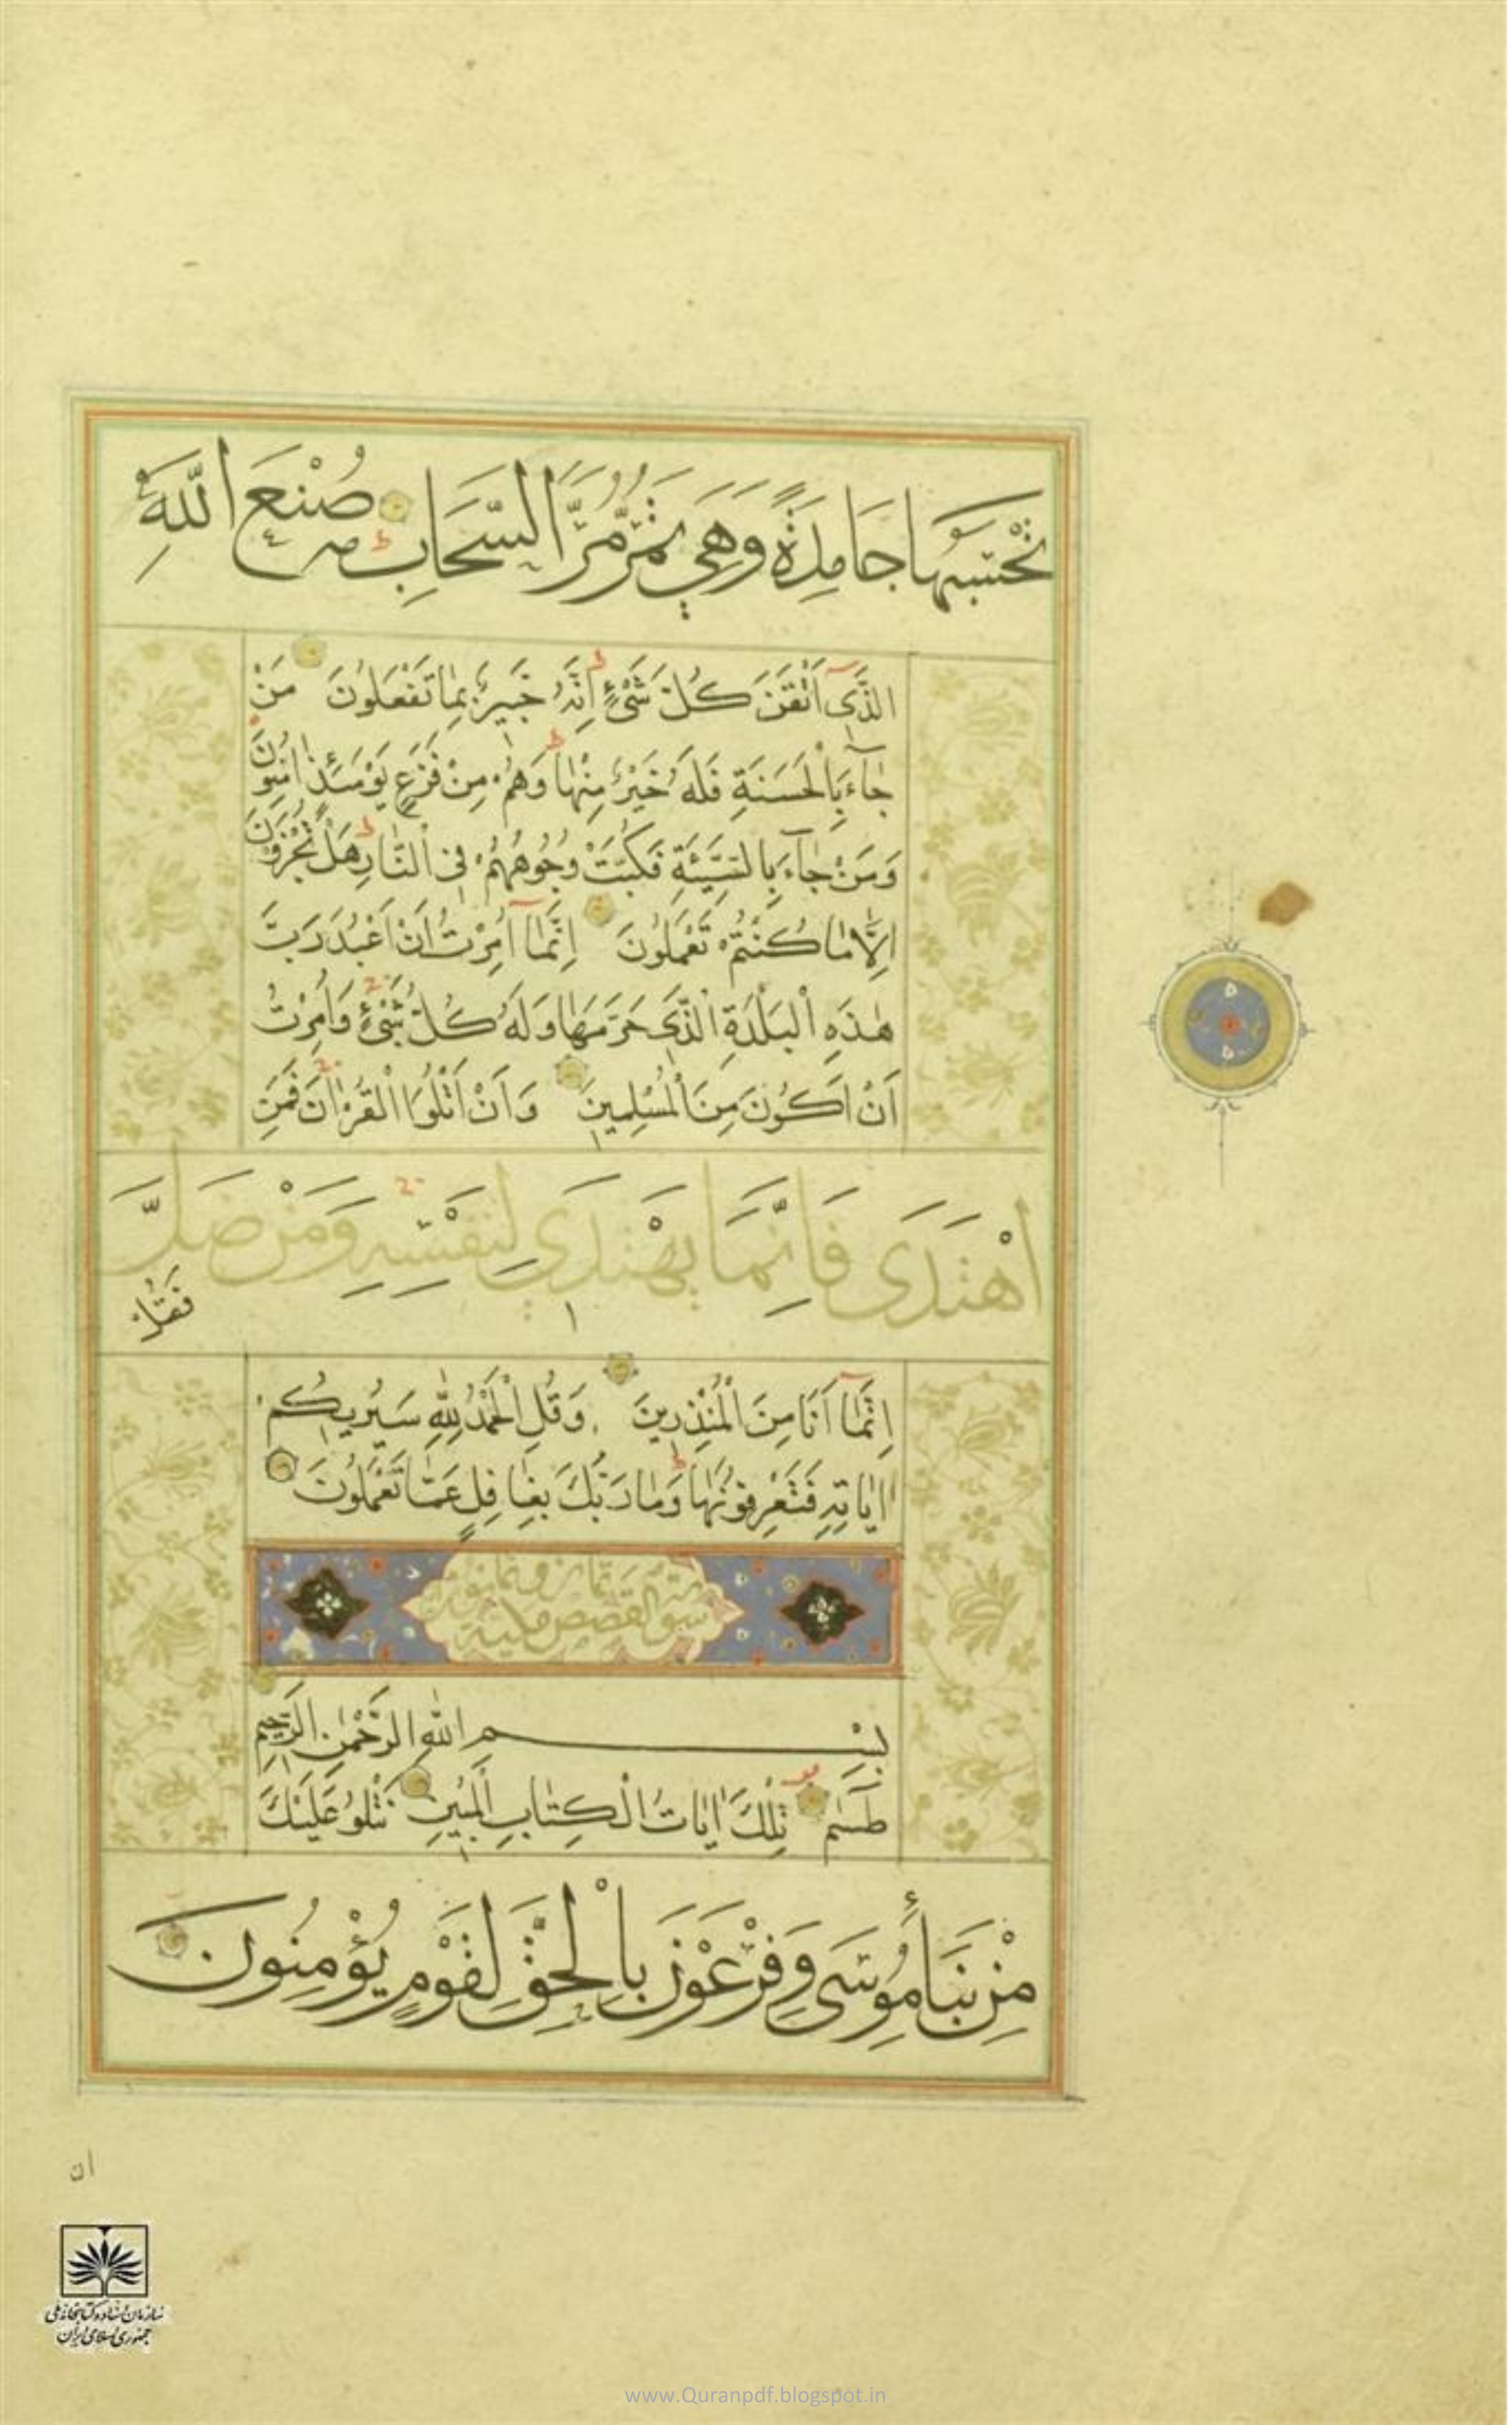 تَحْسَبُهَا جَامِدَةً وَهِيَ تَمُرُّ مَرَّ السَّحَابِ صُنْعَ اللّٰهِ
الَّذَى اَتْقَنَ كُلَّ شَىْءٍ اِنَّهُ خَبِيرٌ بِمَا تَفْعَلُونَ مَنْ
جَآءَ بِالْحَسَنَةِ فَلَهُ خَيْرٌ مِنْهَا وَهُمْ مِنْ فَزَعٍ يَوْمَئِذٍ اٰمِنُونَ
وَمَنْ جَآءَ بِالسَّيِّئَةِ فَكُبَّتْ وُجُوهُهُمْ فِى النَّارِ هَلْ تُجْزَوْنَ
اِلَّا مَا كُنْتُمْ تَعْمَلُونَ اِنَّمَآ اُمِرْتُ اَنْ اَعْبُدَ رَبَّ
هٰذِهِ الْبَلْدَةِ الَّذِى حَرَّمَهَا وَلَهُ كُلُّ شَىْءٍ وَاُمِرْتُ
اَنْ اَكُونَ مِنَ الْمُسْلِمِينَ وَاَنْ اَتْلُوَا الْقُرْاٰنَ فَمَنِ
اهْتَدَى فَاِنَّمَا يَهْتَدِي لِنَفْسِهِ وَمَنْ ضَلَّ
فَقُلْ
اِنَّمَآ اَنَا مِنَ الْمُنْذِرِينَ وَقُلِ الْحَمْدُ لِلّٰهِ سَيُرِيكُمْ
اٰيَاتِهِ فَتَعْرِفُونَهَا وَمَا رَبُّكَ بِغَافِلٍ عَمَّا تَعْمَلُونَ
سورة القصص مكية
بِسْمِ اللّٰهِ الرَّحْمٰنِ الرَّحِيمِ
طٰسٓمٓ تِلْكَ اٰيَاتُ الْكِتَابِ الْمُبِينِ نَتْلُو عَلَيْكَ
مِنْ نَبَأِ مُوسَى وَفِرْعَوْنَ بِالْحَقِّ لِقَوْمٍ يُؤْمِنُونَ
ان
سازمان اسناد و کتابخانه ملی
جمهوری اسلامی ایران
www.Quranpdf.blogspot.in